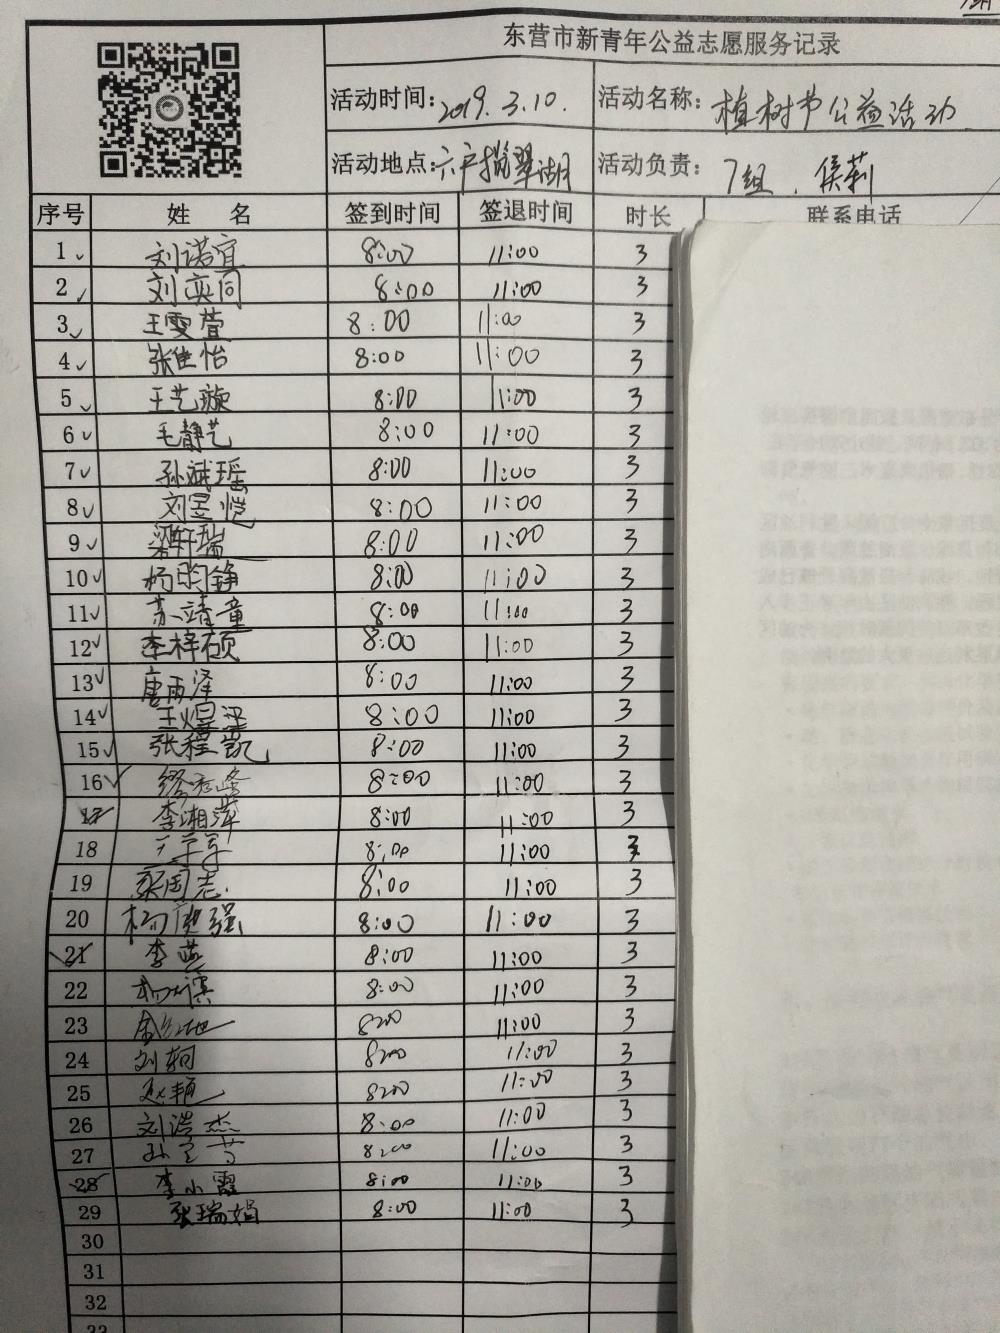 东营市新青年公益志愿服务记录
活动时间：2019.3.10. 活动名称：植树节公益活动
活动地点：六户揽翠湖 活动负责：7组、侯莉
序号 姓 名 签到时间 签退时间 时长 联系电话
1 刘诺宜 8:00 11:00 3
2 刘奕同 8:00 11:00 3
3 王雯萱 8:00 11:00 3
4 张佳怡 8:00 11:00 3
5 王艺璇 8:00 11:00 3
6 毛静艺 8:00 11:00 3
7 孙斌瑶 8:00 11:00 3
8 刘昱恺 8:00 11:00 3
9 梁轩瑞 8:00 11:00 3
10 杨 铮 8:00 11:00 3
11 苏靖童 8:00 11:00 3
12 李梓硕 8:00 11:00 3
13 唐雨泽 8:00 11:00 3
14 王 8:00 11:00 3
15 张程凯 8:00 11:00 3
16 8:00 11:00 3
17 李湘萍 8:00 11:00 3
18 8:00 11:00 3
19 张国志 8:00 11:00 3
20 杨 强 8:00 11:00 3
21 李燕 8:00 11:00 3
22 8:00 11:00 3
23 8:00 11:00 3
24 刘轲 8:00 11:00 3
25 赵艳 8:00 11:00 3
26 刘浩杰 8:00 11:00 3
27 孙 8:00 11:00 3
28 李小霞 8:00 11:00 3
29 张瑞娟 8:00 11:00 3
30
31
32
33